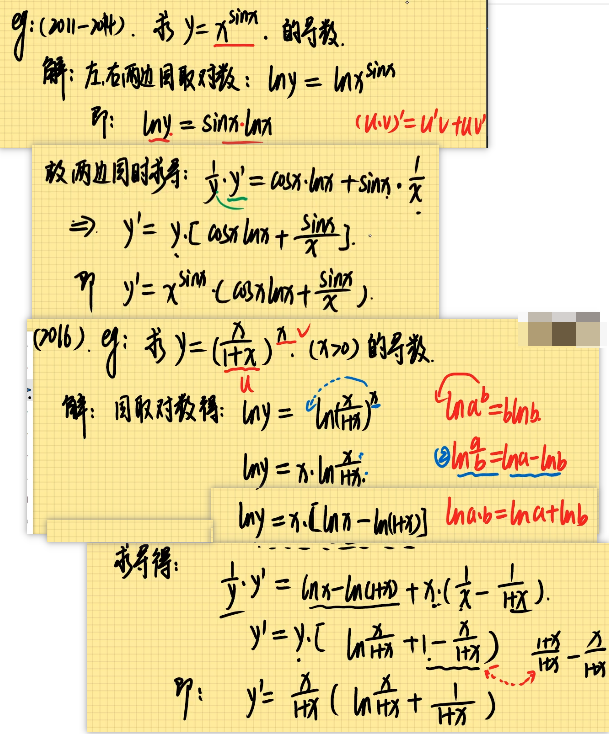 eg:(2011-2014). 求 y=x^sinx. 的导数.
解: 左右两边同取对数: lny = lnx^sinx
即: lny = sinx·lnx (u·v)'=u'v+uv'
故两边同时求导: 1/y·y' = cosx·lnx + sinx·1/x
⇒ y' = y·[cosxlnx + sinx/x].
即 y' = x^sinx·(cosxlnx + sinx/x).
(2016). eg: 求 y=(x/(1+x))^x. (x>0) 的导数. v
u
解: 同取对数得: lny = ln(x/(1+x))^x lna^b=blnb.
lny = x·ln x/(1+x). ② ln a/b=lna-lnb
lny = x·[lnx-ln(1+x)] lna·b=lna+lnb
求导得:
1/y·y' = lnx-ln(1+x) + x·(1/x - 1/(1+x)).
y' = y·[ln x/(1+x) + 1 - x/(1+x)) (1+x)/(1+x) - x/(1+x)
即: y' = x/(1+x) (ln x/(1+x) + 1/(1+x))